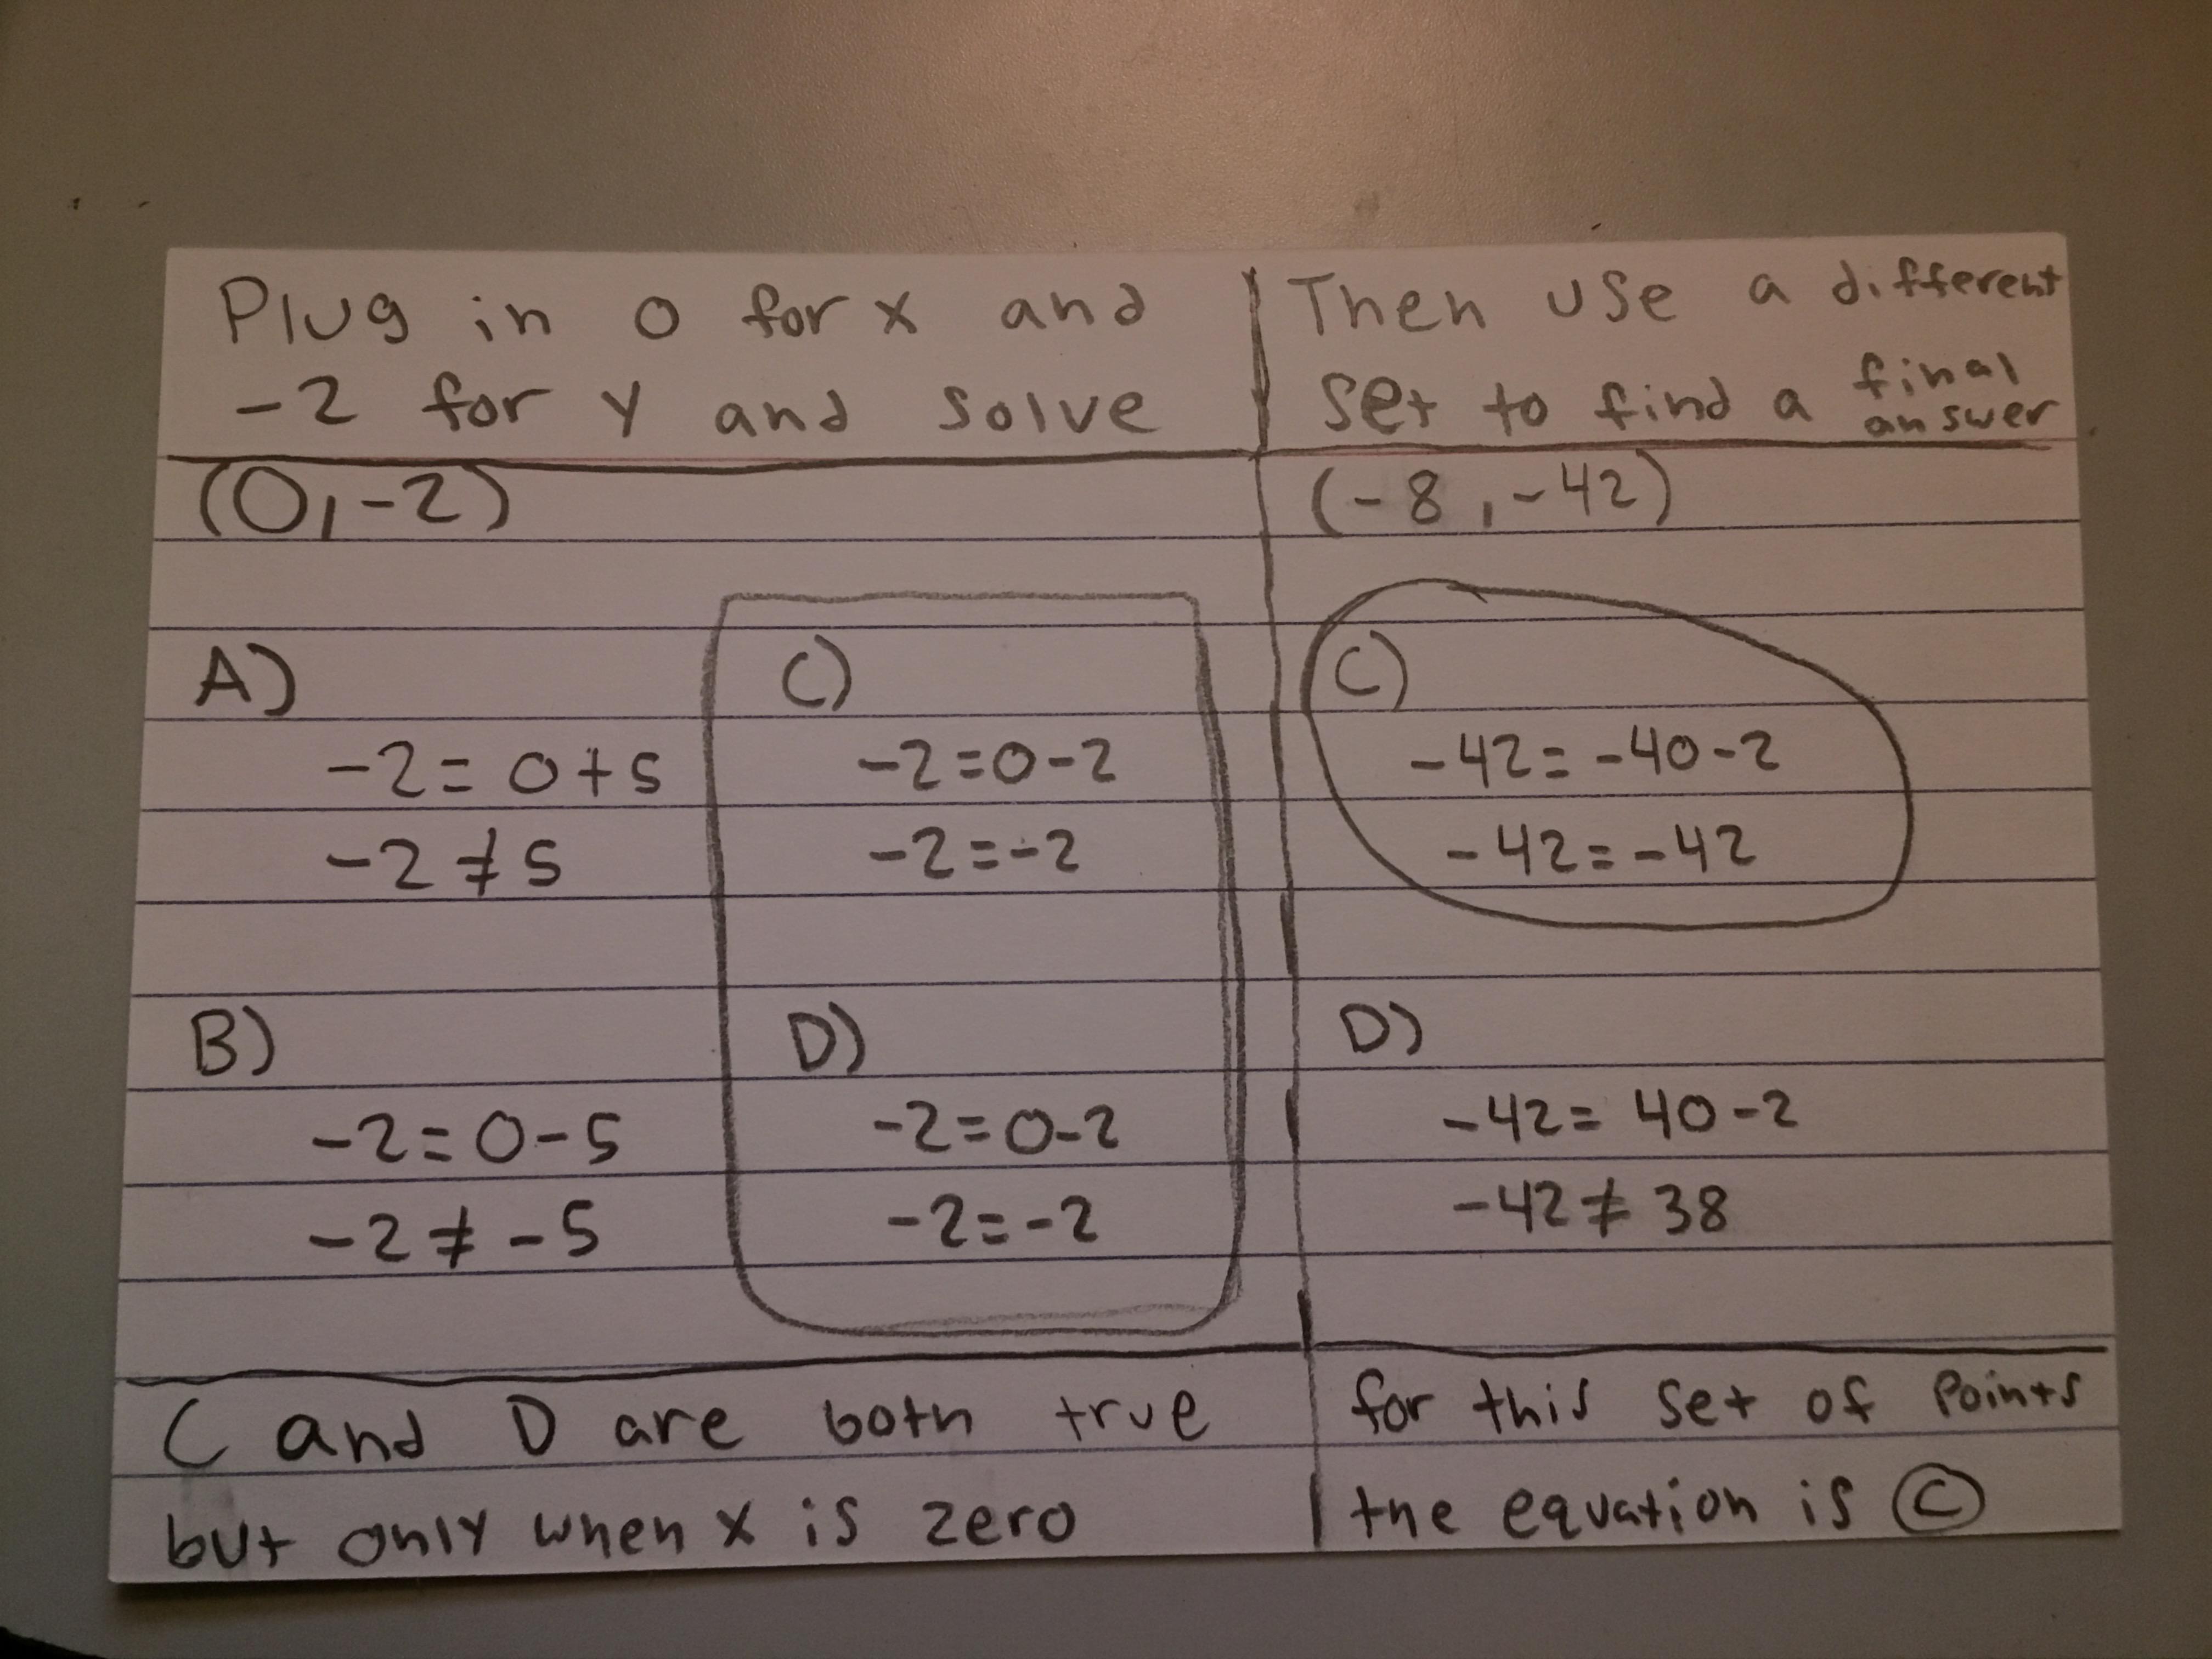 Plug in 0 for x and
-2 for y and solve
(0,-2)
A)
-2=0+5
-2≠5
B)
-2=0-5
-2≠-5
C)
-2=0-2
-2=-2
D)
-2=0-2
-2=-2
C and D are both true
but only when x is zero
Then use a different
set to find a final answer
(-8,-42)
C)
-42=-40-2
-42=-42
D)
-42=40-2
-42≠38
for this set of points
the equation is C